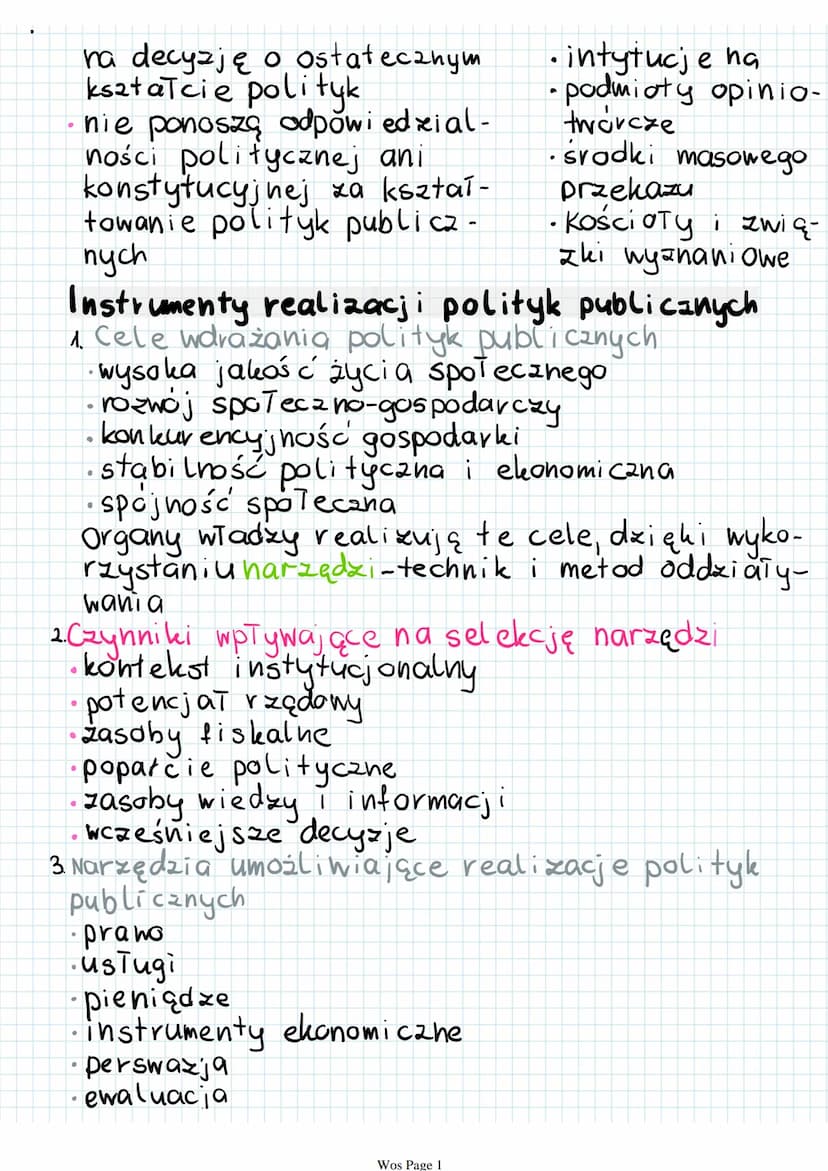 na decyzję o ostatecznym
kształcie polityk
• nie ponoszą odpowiedzial-
ności politycznej ani
konstytucyjnej za kształ-
towanie polityk publicz-
nych
• intytucje na
• podmioty opinio-
twórcze
• środki masowego
przekazu
• Kościoły i zwią-
zki wyznaniowe
Instrumenty realizacji polityk publicznych
1. Cele wdrażania polityk publicznych
• wysoka jakość życia społecznego
• rozwój społeczno-gospodarczy
• konkurencyjność gospodarki
• stabilność polityczna i ekonomiczna
• spójność społeczna
Organy władzy realizują te cele, dzięki wyko-
rzystaniu narzędzi - technik i metod oddziały-
wania
2. Czynniki wpływające na selekcję narzędzi
• kontekst instytucjonalny
• potencjał rządowy
• zasoby fiskalne
• poparcie polityczne
• zasoby wiedzy i informacji
• wcześniejsze decyzje
3. Narzędzia umożliwiające realizacje polityk
publicznych
• prawo
• usługi
• pieniądze
• instrumenty ekonomiczne
• perswazja
• ewaluacja
Wos Page 1